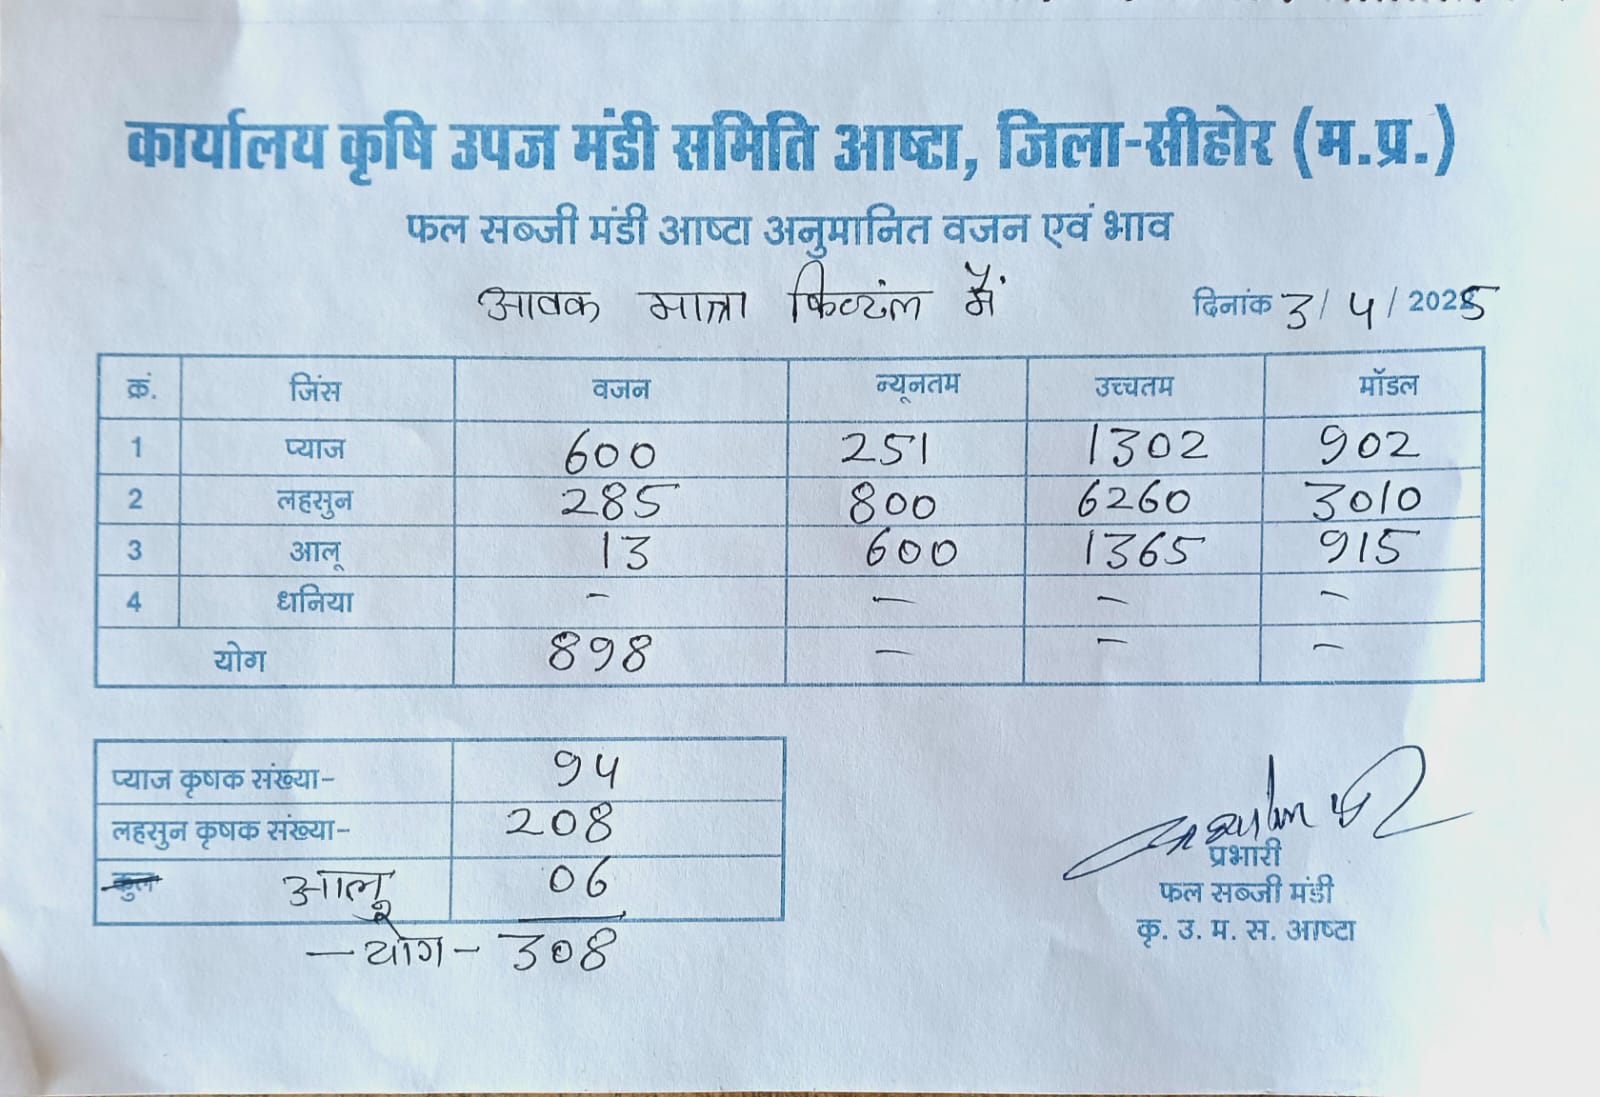 कार्यालय कृषि उपज मंडी समिति आष्टा, जिला-सीहोर (म.प्र.)
फल सब्जी मंडी आष्टा अनुमानित वजन एवं भाव
आवक मात्रा क्विंटल में दिनांक 3/4/2025
क्रं. जिंस वजन न्यूनतम उच्चतम मॉडल
1 प्याज 600 251 1302 902
2 लहसुन 285 800 6260 3010
3 आलू 13 600 1365 915
4 धनिया - - - -
योग 898 - - -
प्याज कृषक संख्या- 94
लहसुन कृषक संख्या- 208
कुल आलू 06
-योग- 308
प्रभारी
फल सब्जी मंडी
कृ. उ. म. स. आष्टा